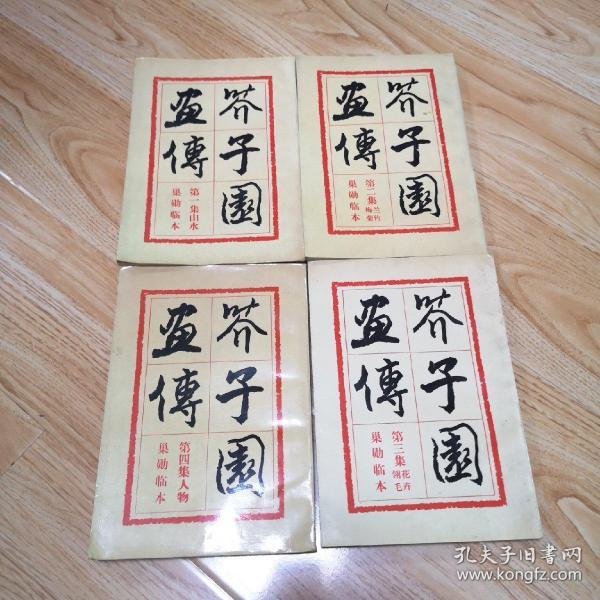 芥子園
畫傳
第一集山水
巢勛临本
芥子園
畫傳
第二集 兰竹梅菊
巢勛临本
芥子園
畫傳
第四集人物
巢勛临本
芥子園
畫傳
第三集 花卉翎毛
巢勛临本
孔夫子旧书网
www.kongfz.com